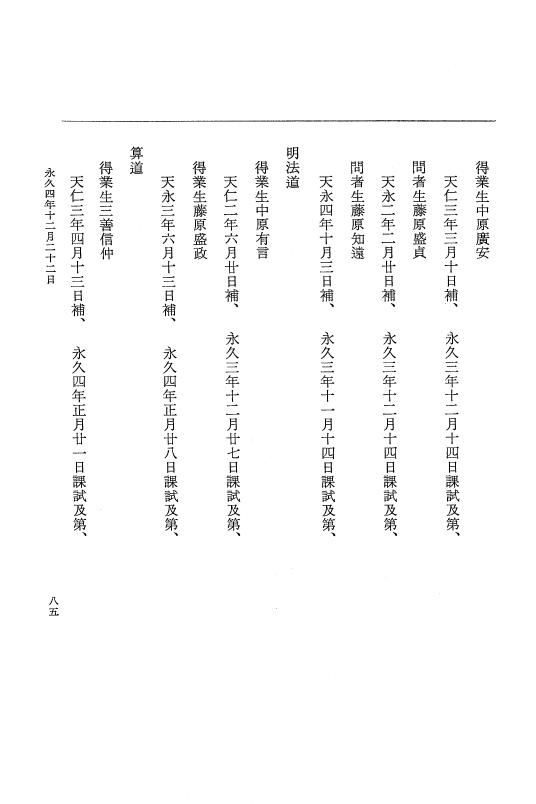 得業生中原廣安
天仁三年三月十日補、　永久三年十二月十四日課試及第、
問者生藤原盛貞
天永二年二月廿日補、　永久三年十二月十四日課試及第、
問者生藤原知遠
天永四年十月三日補、　永久三年十一月十四日課試及第、
明法道
得業生中原有言
天仁二年六月廿日補、　永久三年十二月廿七日課試及第、
得業生藤原盛政
天永三年六月十三日補、　永久四年正月廿八日課試及第、
算道
得業生三善信仲
天仁三年四月十三日補、　永久四年正月廿一日課試及第、
永久四年十二月二十二日
八五